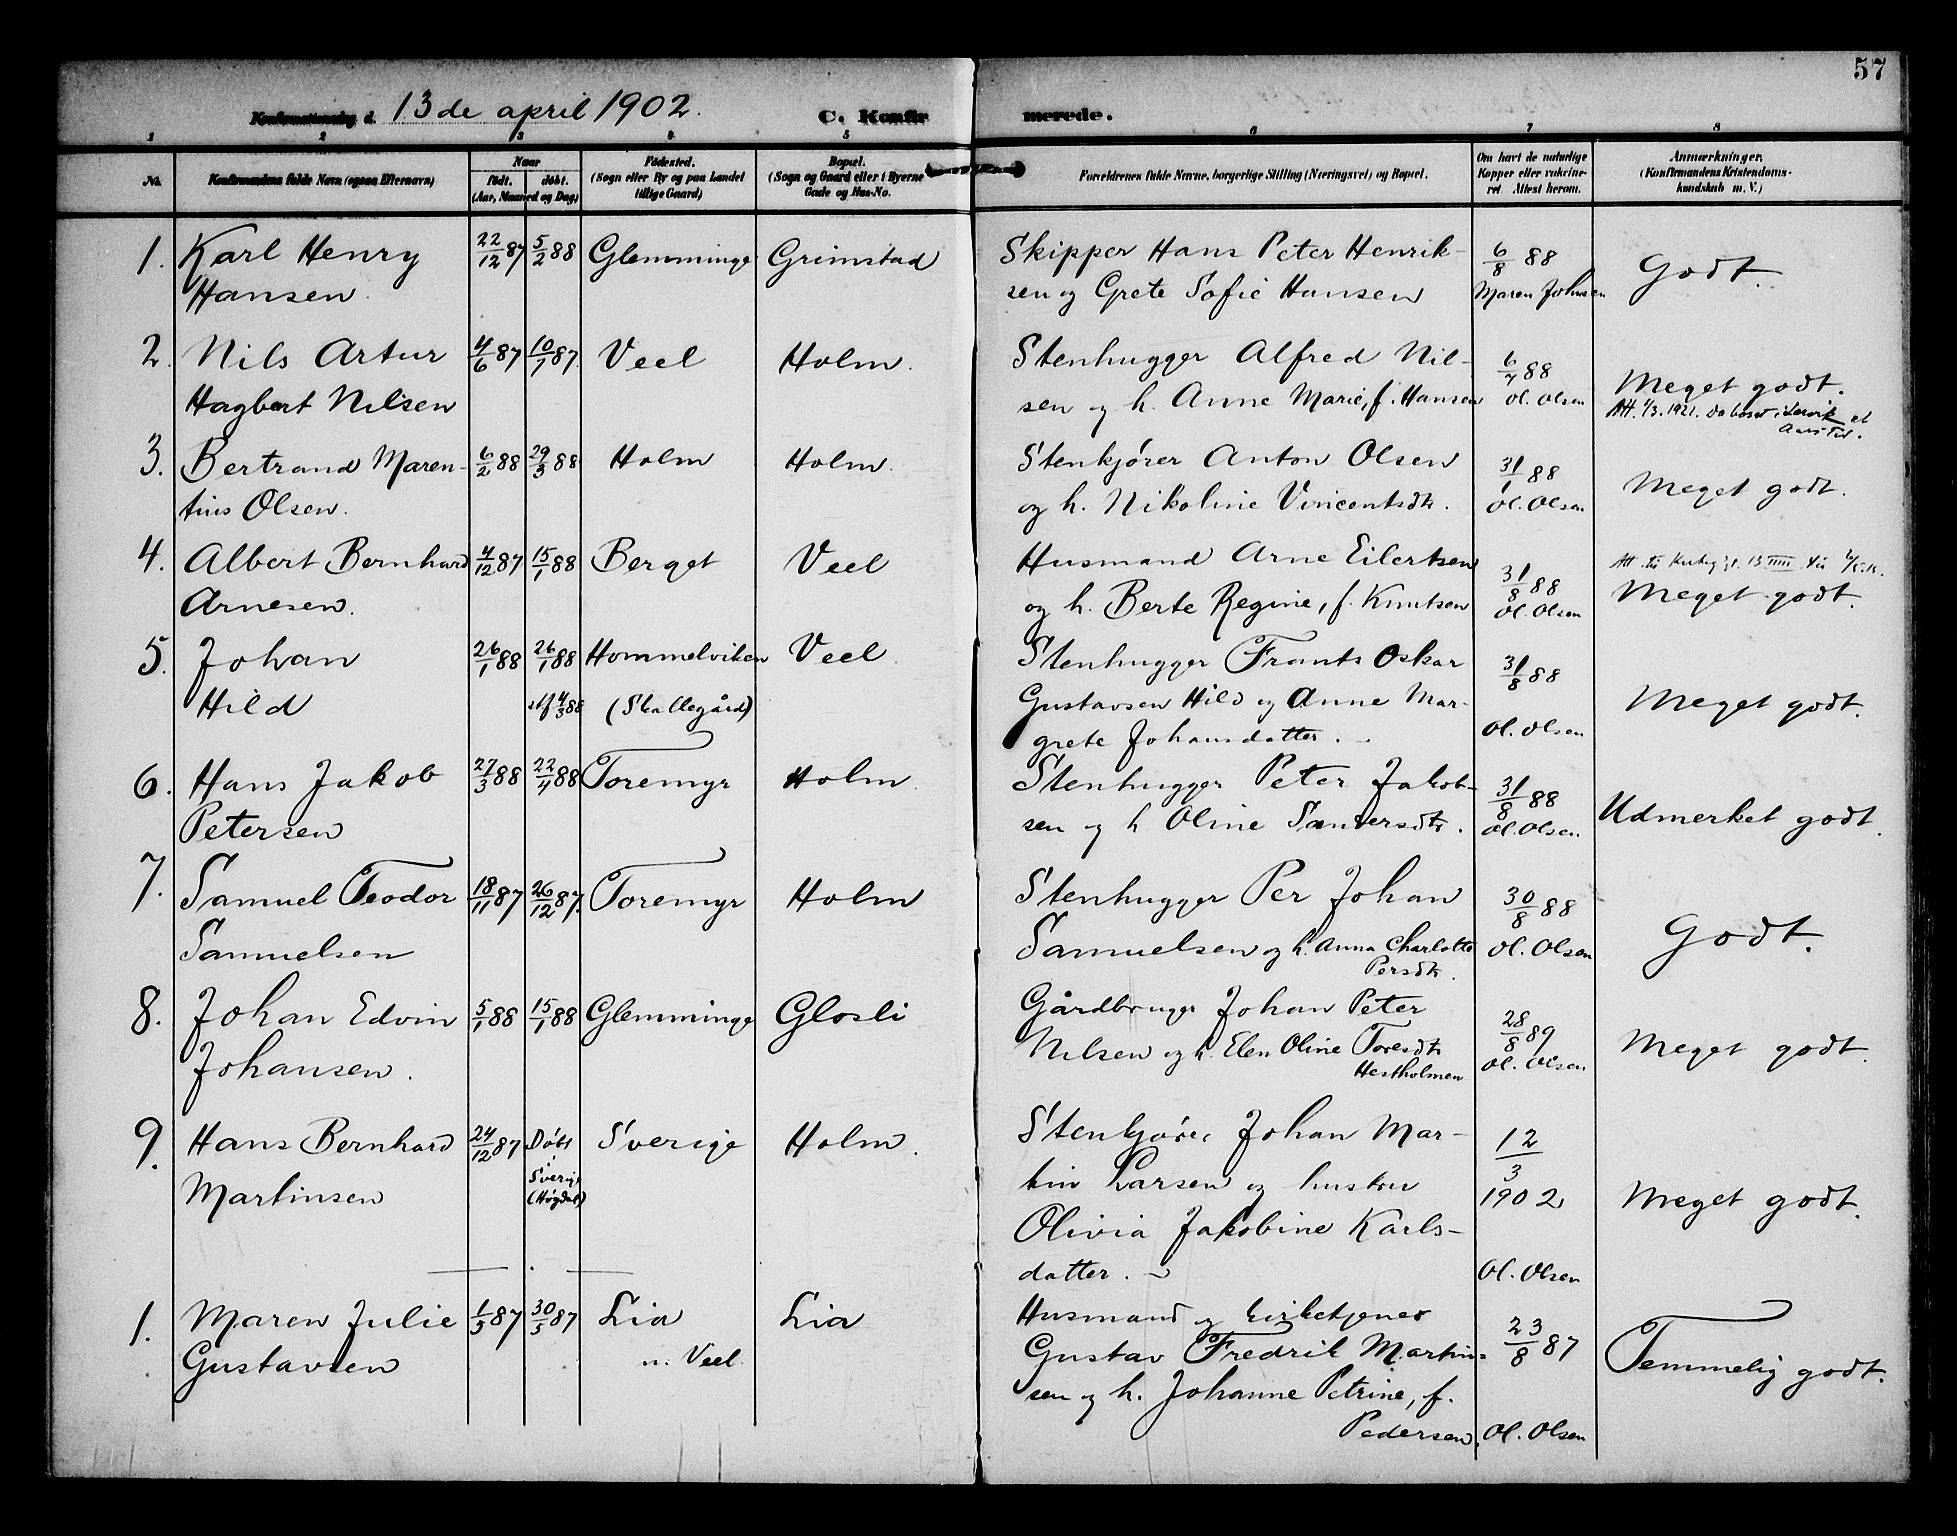 57
Konfirmationsdag d. 13de april 1902. C. Konfir merede.
1 2 3 4 5 6 7 8
No.
Konfirmandens fulde Navn (ogsaa Efternavn)
Naar
født. døbt.
(Aar, Maaned og Dag)
Fødested.
(Sogn eller By og paa Landet
tillige Gaard)
Bopæl.
(Sogn og Gaard eller i Byerne
Gade og Hus-No.
Forældrenes fulde Navne, borgerlige Stilling (Næringsvei) og Bopæl.
Om havt de naturlige
Kopper eller vakcine-
ret Attest herom.
Anmærkninger.
(Konfirmandens Kristendoms-
kundskab m. V.)
1. Karl Henry 22/12 87 5/2 88 Glemminge Grimstad Skipper Hans Peter Henrik- 6/8 88 Godt.
Hansen. sen og Grete Sofie Hansen Maren Johnsen
2. Nils Artur 4/6 87 10/7 87. Veel Holm. Stenhugger Alfred Nil- 6/7 88 Meget godt.
Hagbart Nilsen sen og h. Anne Marie, f. Hansen Ol. Olsen Att. 1/3. 1921.
3. Bertrand Maren- 6/2 88 29/3 88 Holm Holm. Stenkjører Anton Olsen 31/1 88 Meget godt.
tius Olsen. og h. Nikoline Vincentsdtr. Ol. Olsen
4. Albert Bernhard 4/12 87 15/1 88 Berget Veel Husmand Arne Eilertsen 31/8 88 Att.
Arnesen. og h. Berte Regine, f. Knutsen Ol. Olsen Meget godt.
5. Johan 26/1 88 26/1 88 Hommelviken Veel. Stenhugger Frants Oskar 31/8 88
Hild 4/3 88 (Skallegård) Gustavsen Hild og Anne Mar- Meget godt.
grete Johansdatter. Ol. Olsen
6. Hans Jakob 27/3 88 22/4 88 Toremyr Holm. Stenhugger Peter Jakob- 31/8 88 Udmerket godt.
Petersen sen og h Oline Sandersdtr. Ol. Olsen
7. Samuel Teodor 18/11 87 26/12 87. Toremyr Holm Stenhugger Per Johan 30/8 88 Godt.
Samuelsen Samuelsen og h. Anna Charlotte Ol. Olsen
Persdtr.
8. Johan Edvin 5/1 88 15/1 88 Glemminge Glosli Gårdbruger Johan Peter 28/8 89
Johansen. Nilsen og h. Elen Oline Toresdtr Ol. Olsen Meget godt.
Hestholmen
9. Hans Bernhard 24/12 87 Døbt Sverige Holm. Stenkjører Johan Mar- 12/3
Martinsen i Sverige (Høgdal) tin Larsen og hustru 1902 Meget godt.
Olivia Jakobine Karls-
datter. Ol. Olsen
1. Maren Julie 1/5 87 30/5 87 Lia Lia Husmand og kirketjener 23/8 87
Gustavsen u. Veel. Gustav Fredrik Martin- Temmelig godt.
sen og h. Johanne Petrine, f.
Pedersen. Ol. Olsen